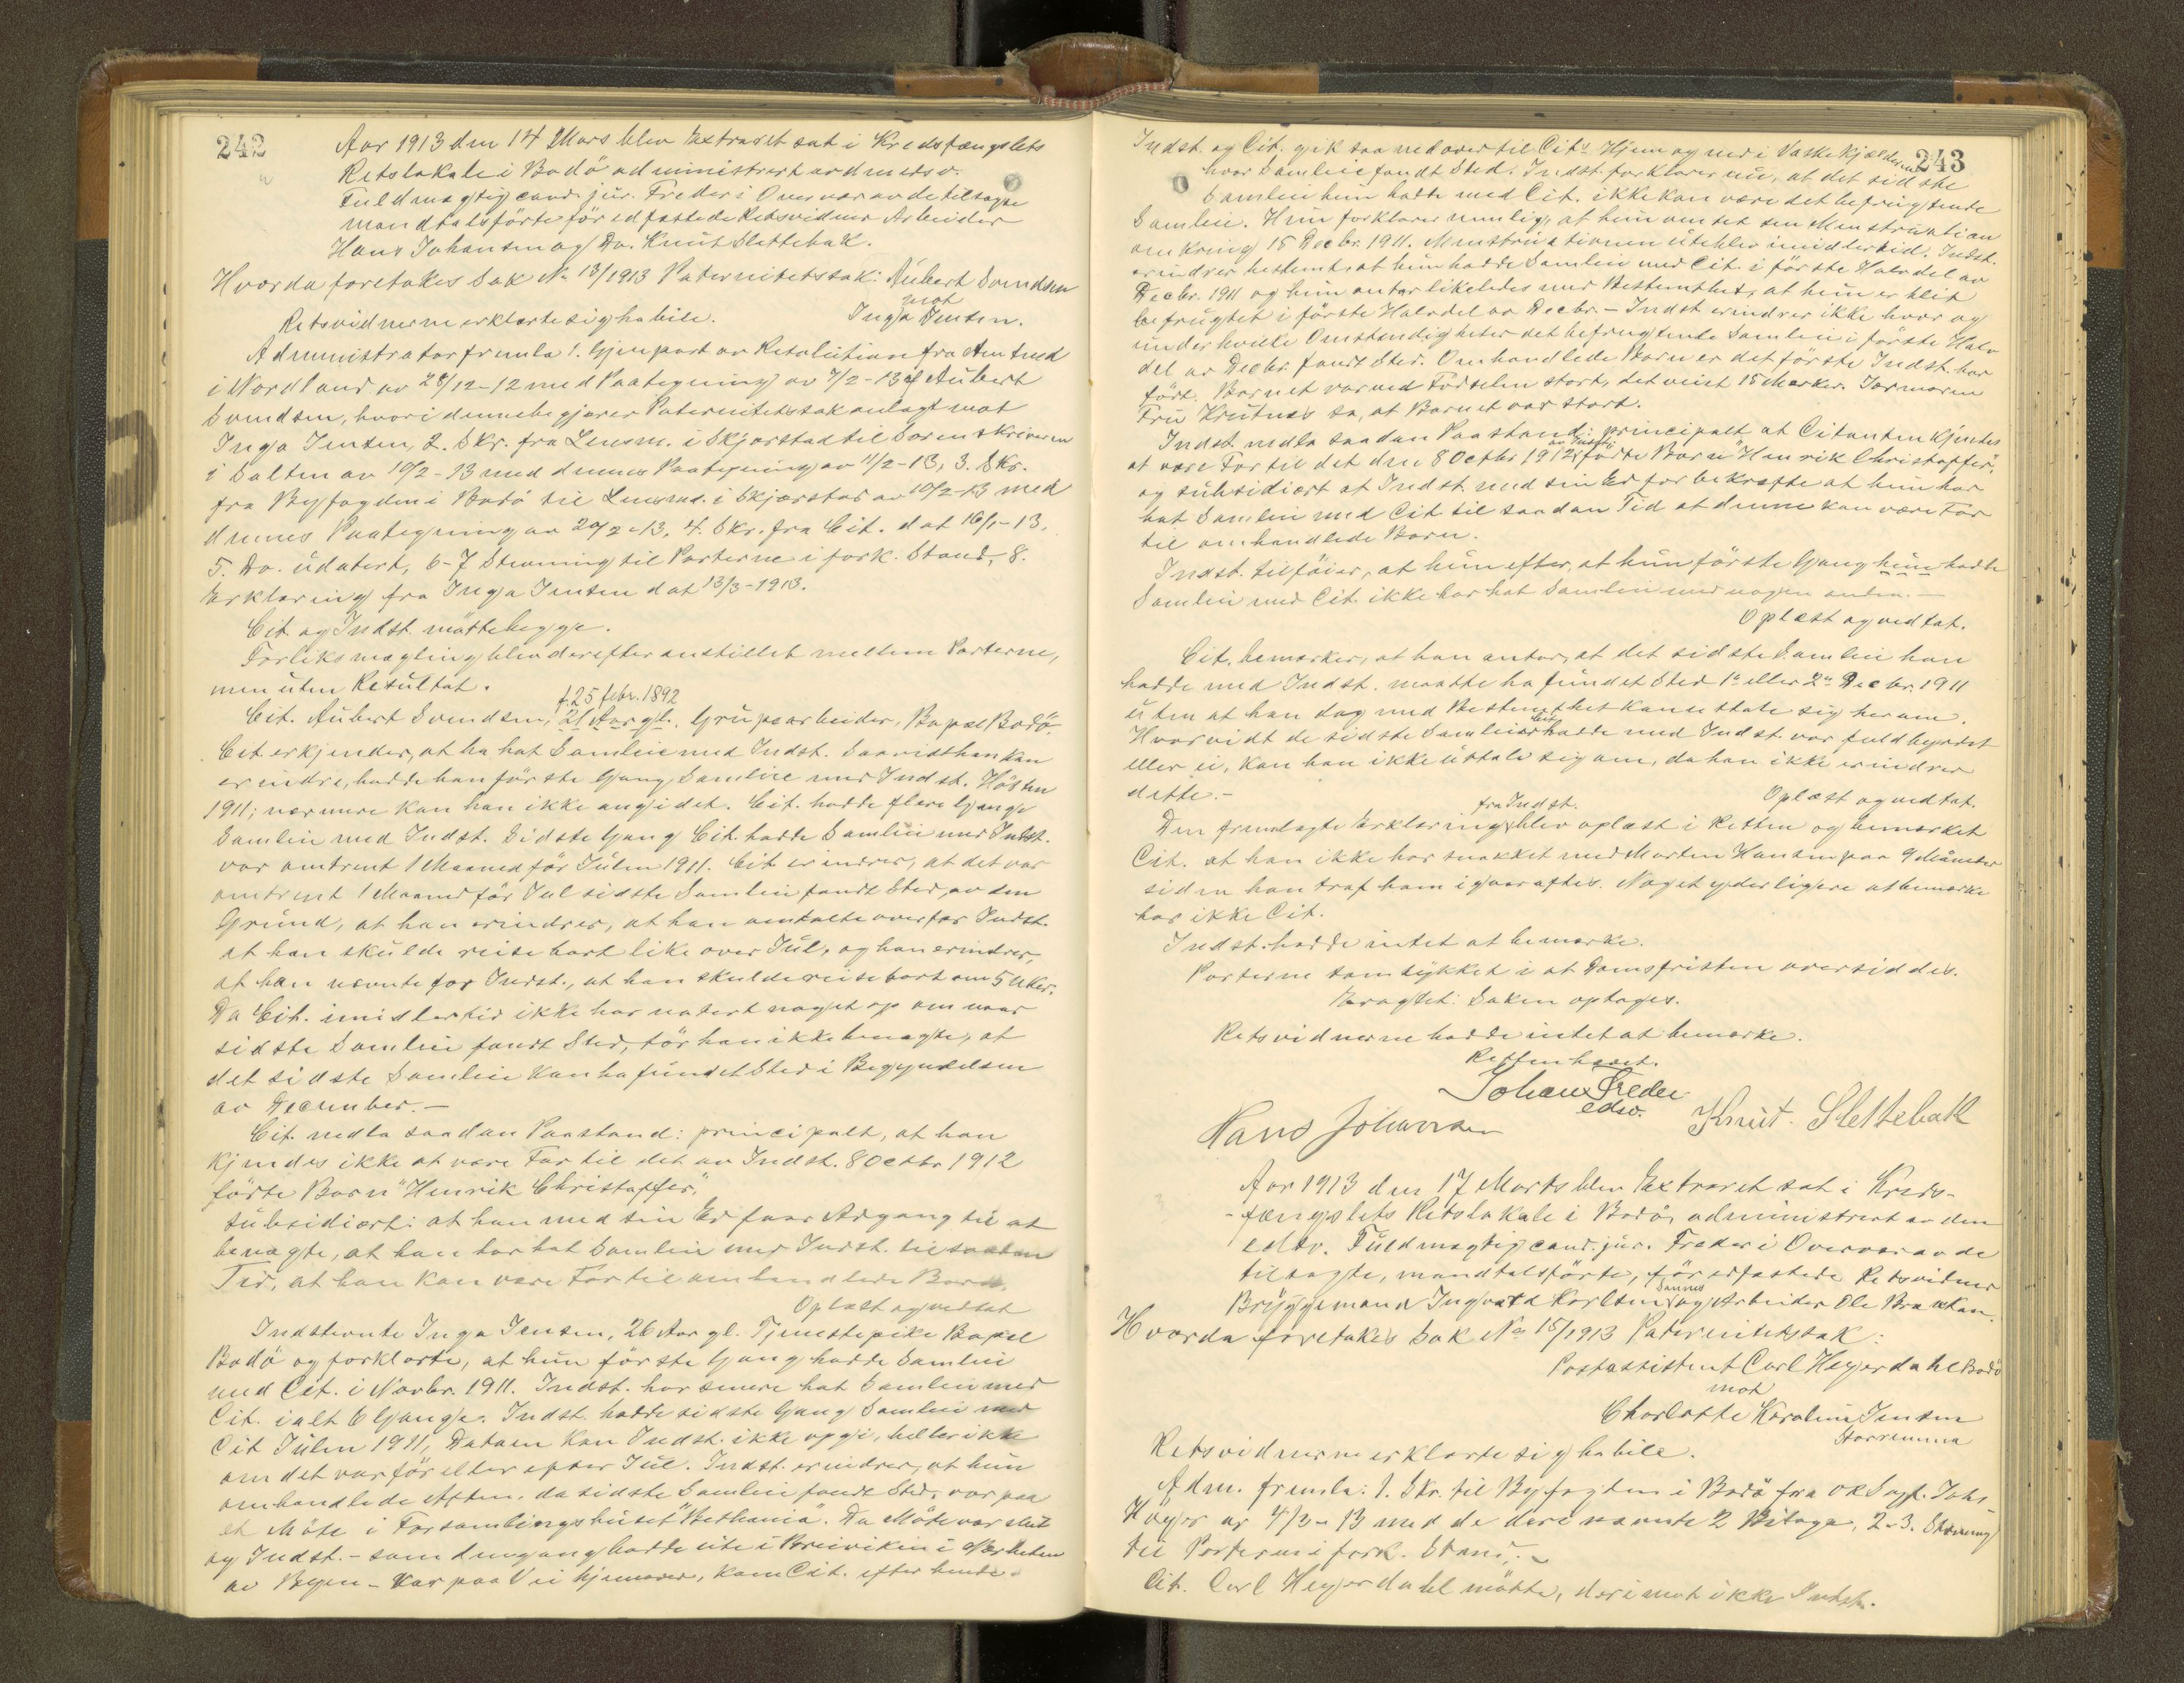 242
Aar 1913 den 14 Mars blev Extraret sat i Kredsfængslets
Retslokale i Bodö administrert av dm edsv.
Fuldmægtig cand. jur. Freder i Overvær av de tilsagte
mandtalsförte för edfæstede Retsvidner Arbeider
Hans Johansen og Do. Knut Slettebak.
Hvorda foretokes Sak No 13/1913 Paternitetssak: Aubert Svendsen
mot
Retsvidnerne erklærte sig habile. Inga Jensen.
Administrator fremla 1. Gjenpart av Resolution fra Amtmd
i Nordland av 28/12-12 med Paategning av 7/2-13 af Aubert
Svendsen, hvori denne begjærer Paternitetssak anlagt mot
Inga Jensen, 2. Skr. fra Lensm. i Skjerstad til Sorenskriveren
i Salten av 10/2-13 med dennes Paategning av 11/2-13, 3. Skr.
fra Byfogden i Bodö til Lensmd. i Skjerstad av 10/2-13 med
dennes Paategning av 20/2-13, 4. Skr. fra Cit. dat 16/1-13,
5. Do. udatert, 6-7 Stevning til Parterne i fork. Stand, 8.
Erklæring fra Inga Jensen dat 13/3-1913.
Cit. og Indst. mötte begge.
Forliksmægling blev derefter anstillet mellem Parterne,
men uten Resultat.
f. 25 febr. 1892
Cit. Aubert Svendsen, 21 Aar gl. Grupearbeider, Bopæl Bodö.
Cit. erkjender, at ha hat Samleie med Indst. Saavidt han kan
erindre, hadde han förste Gang Samleie med Indst. Hösten
1911; nærmere kan han ikke angi det. Cit. hadde flere Gange
Samleie med Indst. Sidste Gang Cit. hadde Samleie med Indst.
var omtrent 1 Maaned för Julen 1911. Cit. erindrer, at det var
omtrent 1 Maaned för Jul sidste Samleie fandt Sted, av den
Grund, at han erindrer, at han omtalte overfor Indst.
at han skulde reise bort like over Jul, og han erindrer,
at han nævnte for Indst., at han skulde reise bort om 5 Uker.
Da Cit. imidlertid ikke har notert noget op om naar
sidste Samleie fandt Sted, tör han ikke benegte, at
det sidste Samleie kan ha fundet Sted i Begyndelsen
av December.-
Cit. nedla saadan Paastand: principalt, at han
kjendes ikke at være Far til det av Indst. 8 Octbr 1912
födte Barn "Henrik Christoffer",
subsidiært: at han med sin Ed faar Adgang til at
benægte, at han har hat Samleie med Indst. til saadan
Tid, at han kan være Far til omhandlede Barn.
Oplæst og vedtat
Indstevnte Inga Jensen, 26 Aar gl. Tjenestepike Bopæl
Bodö og forklarte, at hun förste Gang hadde Samleie
med Cit. i Novbr. 1911. Indst. har senere hat Samleie med
Cit. ialt 6 Gange. Indst. hadde sidste Gang Samleie med
Cit Julen 1911, Datoen kan Indst. ikke opgi, heller ikke
om det var för eller efter Jul. Indst. erindrer, at hun
omhandlede Aften, da sidste Samleie fandt Sted, var paa
et Möte i Forsamlingshuset "Bethania". Da Möte var slut
og Indst. - som dengang hadde ute i Breiviken i Nærheten
av Byen - var paa Vei hjemover, kom Cit. efter hende.
243
Indst. og Cit. gik saa nedover til Cits Hjem og ned i Vaskekjælderen
hvor Samleie fandt Sted. Indst. forklarer nu, at det sidste
Samleie hun hadde med Cit. ikke kan være det befrugtende
Samleie. Hun forklarer nemlig, at hun ventet sin Menstruation
omkring 15 Decbr. 1911. Menstruationen uteblev imidlertid. Indst.
erindrer bestemt, at hun hadde Samleie med Cit. i förste Halvdel av
Decbr. 1911 og hun antar likeledes med Bestemthet, at hun er blit
befrugtet i förste Halvdel av Decbr. - Indst erindrer ikke hvor og
under hvilke Omstændigheter det befrugtende Samleie i förste Halv
del av Decbr. fandt Sted. Omhandlede Barn er det förste Indst. har
född. Barnet var ved Födselen stort, det veiet 15 Merker. Jormoren
Fru Krutnes sa, at Barnet var stort.
Indst. nedla saadan Paastand: principalt at Citanten kjendes
av Indst.
at være Far til det den 8 Octbr 1912 födte Barn "Henrik Christoffer",
og subsidiært at Indst. med sin Ed for bekræfte at hun har
hat Samleie med Cit til saadan Tid at denne kan være Far
til omhandlede Barn.
Indst. tilföier, at hun efter, at hun förste Gang hun hadde
Samleie med Cit. ikke har hat Samleie med nogen anden.-
Oplæst og vedtat.
Cit. bemærker, at han antar, at det sidste Samleie han
hadde med Indst. maatte ha fundet Sted 1ste eller 2den Decbr. 1911
uten at han dog med Bestemthet kan uttale sig herom.
Cit.
Hvorvidt de sidste Samleier hadde med Indst. var fuldbyrdet
eller ei, kan han ikke uttale sig om, da han ikke erindrer
dette.- Oplæst og vedtat.
fra Indst.
Den fremlagte Erklæring blev oplæst i Retten og bemerket
Cit. at han ikke har snakket med Morten Hansen paa 9 Måneder
siden han traf ham igaaraftes. Noget yderligere at bemerke
har ikke Cit.
Indst. hadde intet at bemærke.
Parterne samtykket i at Domsfristen oversiddes.
Eragtet: Saken optages.
Retsvidnerne hadde intet at bemærke.
Retten hævet.
Johan Freder
edsv.
Hans Johansen Knut. Slettebakk
Aar 1913 den 17 Marts blev Extraret sat i Kreds-
-fængslets Retslokale i Bodö, administrert av den
edsv. Fuldmægtig cand. jur. Freder i Overvær av de
tilsagte, mandtalsförte, för edfæstede Retsvidner
Sannes
Bryggemand Ingvard Karlsen og Arbeider Ole Brækkan.
Hvorda foretokes Sak No 15/1913 Paternitetssak:
Postassistent Carl Heyerdahl Bodö
mot
Charlotte Karoline Jensen
Storremma
Retsvidnerne erklærte sig habile.
Adm. fremla: 1. Skr. til Byfogden i Bodö fra OR Sagf. Johs
Höyer av 4/3-13 med de deri nævnte 2 Bilage, 2-3. Stevning
til Parterne i fork. Stand.-
Cit. Carl Heyerdahl mötte, derimot ikke Indst.